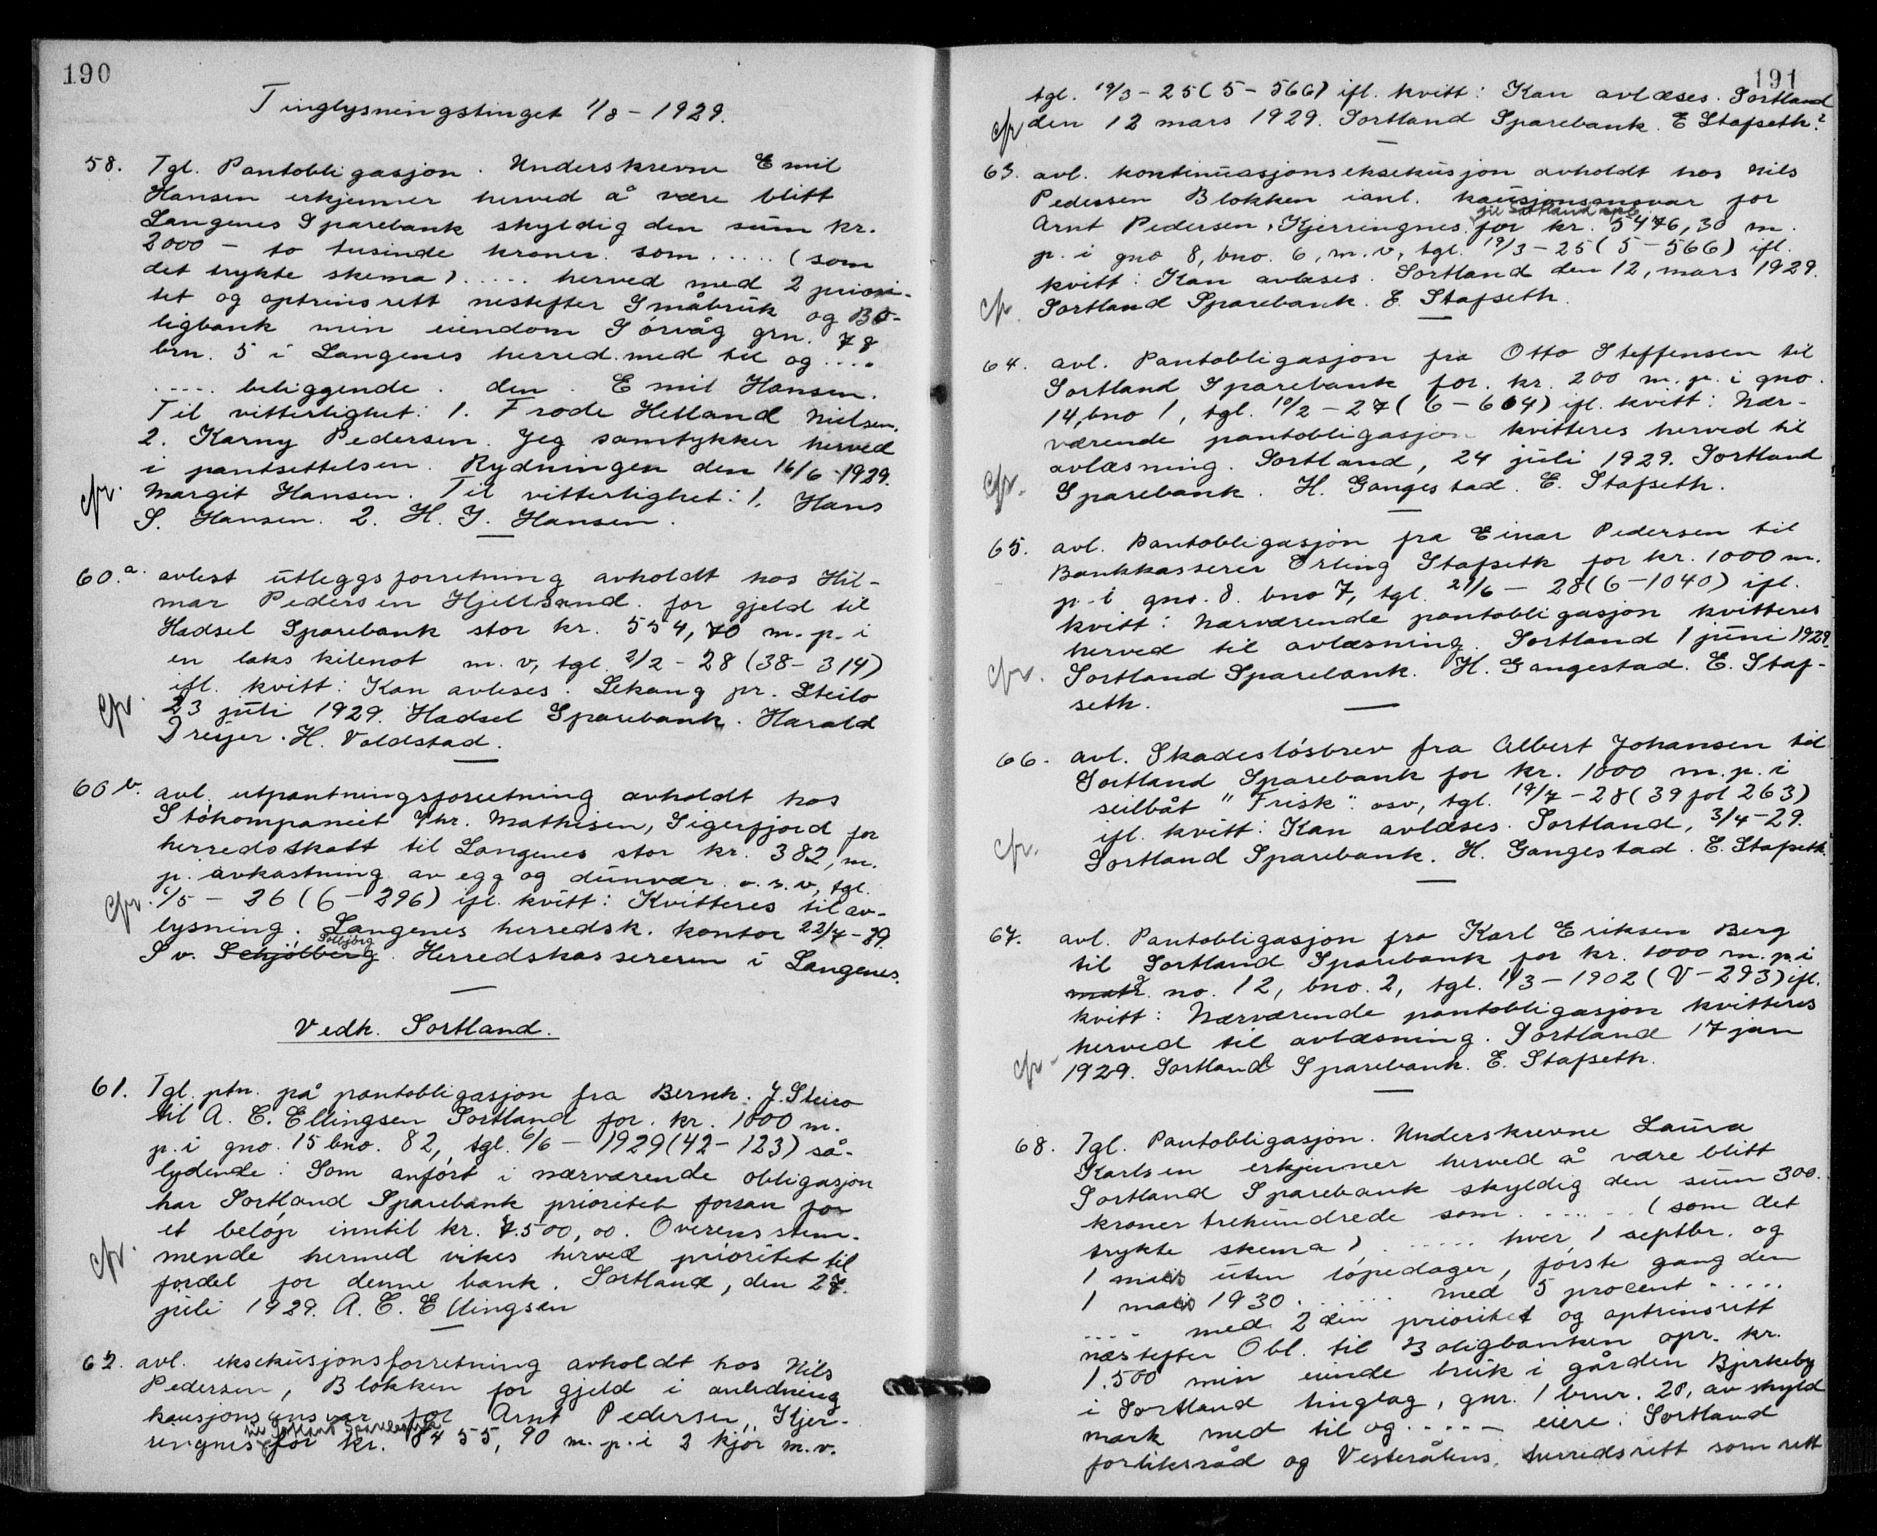 190
Tinglysningstinget 1/8 - 1929.
58. Tgl. Pantobligasjon. Underskrevne Emil
Hansen erkjenner herved å være blitt
Langenes Sparebank skyldig den sum kr.
2000 - to tusinde kroner som ..... (som
det trykte skema) ..... herved med 2 priori-
tet og optrinsrett nestefter Småbruk og Bo-
ligbank min eiendom Sørvåg grn. 78
brn. 5 i Langenes herred med til og ....
..... beliggende. den . Emil Hansen.
Til vitterlighet: 1. Frode Hetland Nielsen.
2. Karny Pedersen. Jeg samtykker herved
i pantsettelsen. Rydningen den 16/6 - 1929.
cfr. Margit Hansen. Til vitterlighet: 1. Hans
S. Hansen. 2. H. J. Hansen.
60.a. avlest utleggsforretning avholdt hos Hil-
mar Pedersen Hjellsand. for gjeld til
Hadsel Sparebank stor kr. 554,70 m. p. i
en laks kilenot m. v, tgl. 2/2 - 28 (38 - 314)
ifl. kvitt: Kan avleses. Lekang pr. Steilo
cfr. 23 juli 1929. Hadsel Sparebank. Harald
Dreyer. H. Voldstad.
60 b. avl. utpantningsforretning avholdt hos
Stökompaniet v/hr. Mathisen, Sigerfjord for
herredsskatt til Langenes stor kr. 382, m.
p. avkastning av egg og dunvær o. s. v, tgl.
cfr. 1/5 - 26 (6 - 296) ifl. kvitt: Kvitteres til av-
lysning. Langenes herredsk. kontor 22/7 - 29.
Solbjörg
S v. Schjölberg. Herredskassereren i Langenes.
Vedk. Sortland.
61. Tgl. ptn. på pantobligasjon fra Bernh. J. Steiro
til A. C. Ellingsen Sortland for. kr. 1000 m.
p. i gno. 15 bno. 82, tgl. 6/6 - 1929 (42 - 123) så-
lydende: Som anført i nærværende obligasjon
har Sortland Sparebank prioritet foran for
et beløp inntil kr. 7.500,00. Overensstem-
cfr. mende hermed vikes herved prioritet til
fordel for denne bank. Sortland, den 27.
juli 1929. A. C. Ellingsen
62. avl. eksekusjonsforretning avholdt hos Nils
Pedersen, Blokken for gjeld i anledning
kausjonsansvar for Arnt Pedersen, Kjer-
til Sortland Sparebank
ringnes for kr. 8455,90 m. p. i 2 kjör m. v.
191
tgl. 19/3 - 25 (5 - 566) ifl. kvitt: Kan avlæses. Sortland
cfr den 12 mars 1929. Sortland Sparebank. E Stafseth.
63. avl. kontinuasjonseksekusjon avholdt hos Nils
Pedersen Blokken ianl. kausjonsansvar for
til Sortland spb.
Arnt Pedersen, Kjerringnes. for kr. 5476,30 m.
p. i gno 8, bno. 6, m. v, tgl. 19/3 - 25 (5 - 566) ifl.
kvitt: Kan avlæses. Sortland den 12, mars 1929.
cfr. Sortland Sparebank. E. Stafseth.
64. avl. Pantobligasjon fra Otto Steffensen til
Sortland Sparebank for. kr. 200 m. p. i gno.
14, bno 1, tgl. 10/2 - 27 (6 - 604) ifl. kvitt: Nær-
værende pantobligasjon kvitteres herved til
avlæsning. Sortland, 24 juli 1929. Sortland
cfr. Sparebank. H. Gangestad. E. Stafseth.
65. avl. Pantobligasjon fra Einar Pedersen til
Bankkasserer Erling Stafseth for kr. 1000 m.
p. i gno. 8. bno 7, tgl. 21/6 - 28 (6 - 1040) ifl.
kvitt: Nærværende pantobligasjon kvitteres
herved til avlæsning. Sortland 1 juni 1929.
cfr. Sortland Sparebank. H. Gangestad. E. Staf-
seth.
66. avl. Skadeslösbrev fra Albert Johansen til
Sortland Sparebank for kr. 1000 m. p. i
seilbåt "Frisk". osv, tgl. 19/7 - 28 (39 fol 263)
ifl. kvitt: Kan avlæses. Sortland, 3/4 - 29.
cfr. Sortland Sparebank. H. Gangestad. E. Stafseth.
67. avl. Pantobligasjon fra Karl Eriksen Berg
til Sortland Sparebank for kr. 1000 m. p. i
matr. g no. 12, bno. 2, tgl. 1/3 - 1902 (V - 293) ifl.
kvitt: Nærværende pantobligasjon kvitteres
herved til avlæsning. Sortland 17 jan
cfr. 1929. Sortland Sparebank. E. Stafseth.
68. Tgl. Pantobligasjon. Underskrevne Laura
Karlsen erkjenner herved å være blitt
Sortland Sparebank skyldig den sum 300.
kroner trehundrede som ...... (som det
trykte skema) ...... hver 1 septbr. og
1 mars uten løpedager, første gang den
1 mars 1930. ...... med 5 procent .....
.... med 2 den prioritet og optrinsrett
næstefter Obl. til Boligbanken opr. kr.
1.500 min eiende bruk i gården Bjerkeby
i Sortland tinglag, gnr. 1 bnr. 28, av skyld
mark med til og ..... eiere: Sortland
forliksråd og Vesterålens herredsrett som rett